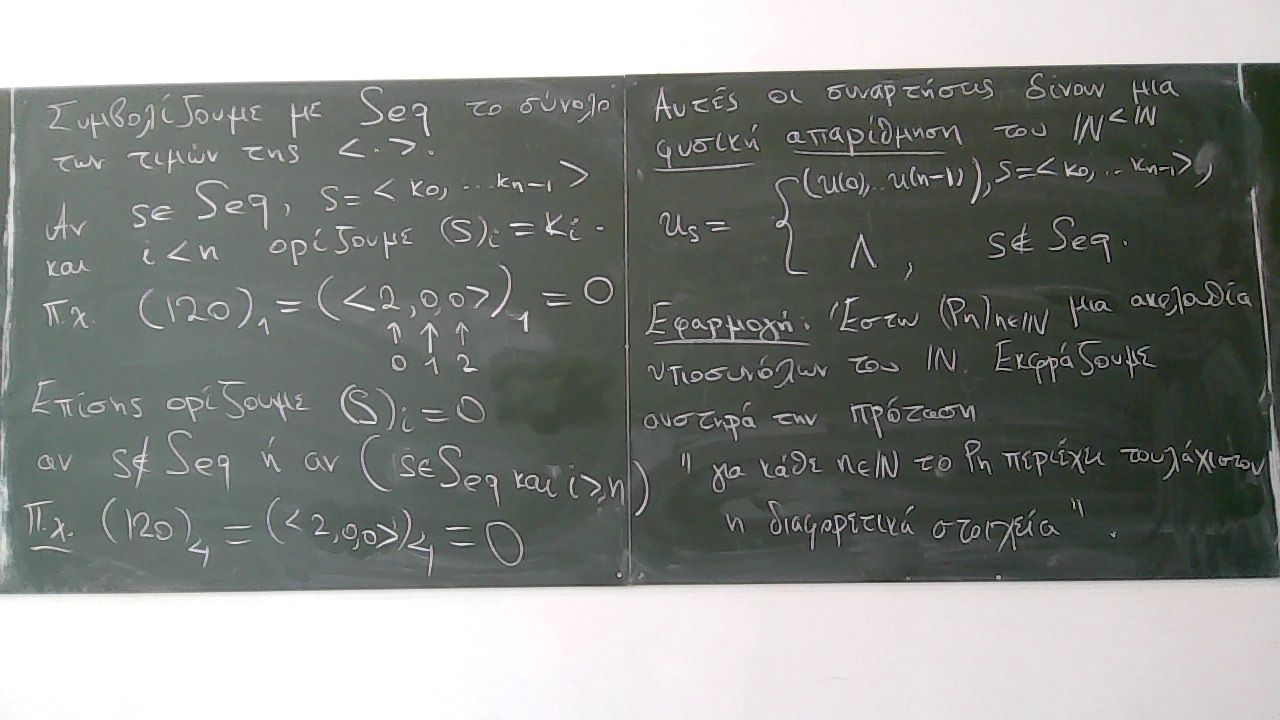 Συμβολίζουμε με Seq το σύνολο
των τιμών της < · >.
Αν s∈ Seq, s = < k0, ... kn-1 >
και i < n ορίζουμε (s)i = ki .
Π.χ. (120)1 = (<2,0,0>)1 = 0
↑ ↑ ↑
0 1 2
Επίσης ορίζουμε (s)i = 0
αν s∉ Seq ή αν (s∈Seq και i≥n)
Π.χ. (120)4 = (<2,0,0>)4 = 0
Αυτές οι συναρτήσεις δίνουν μια
φυσική απαρίθμηση του ℕ<ℕ
us = { (u(0),.. u(n-1)), s=< k0, .. kn-1 >,
Λ , s∉ Seq.
Εφαρμογή: Έστω (Pn)n∈ℕ μια ακολουθία
υποσυνόλων του ℕ. Εκφράζουμε
αυστηρά την πρόταση
" για κάθε n∈ℕ το Pn περιέχει τουλάχιστον
n διαφορετικά στοιχεία " .